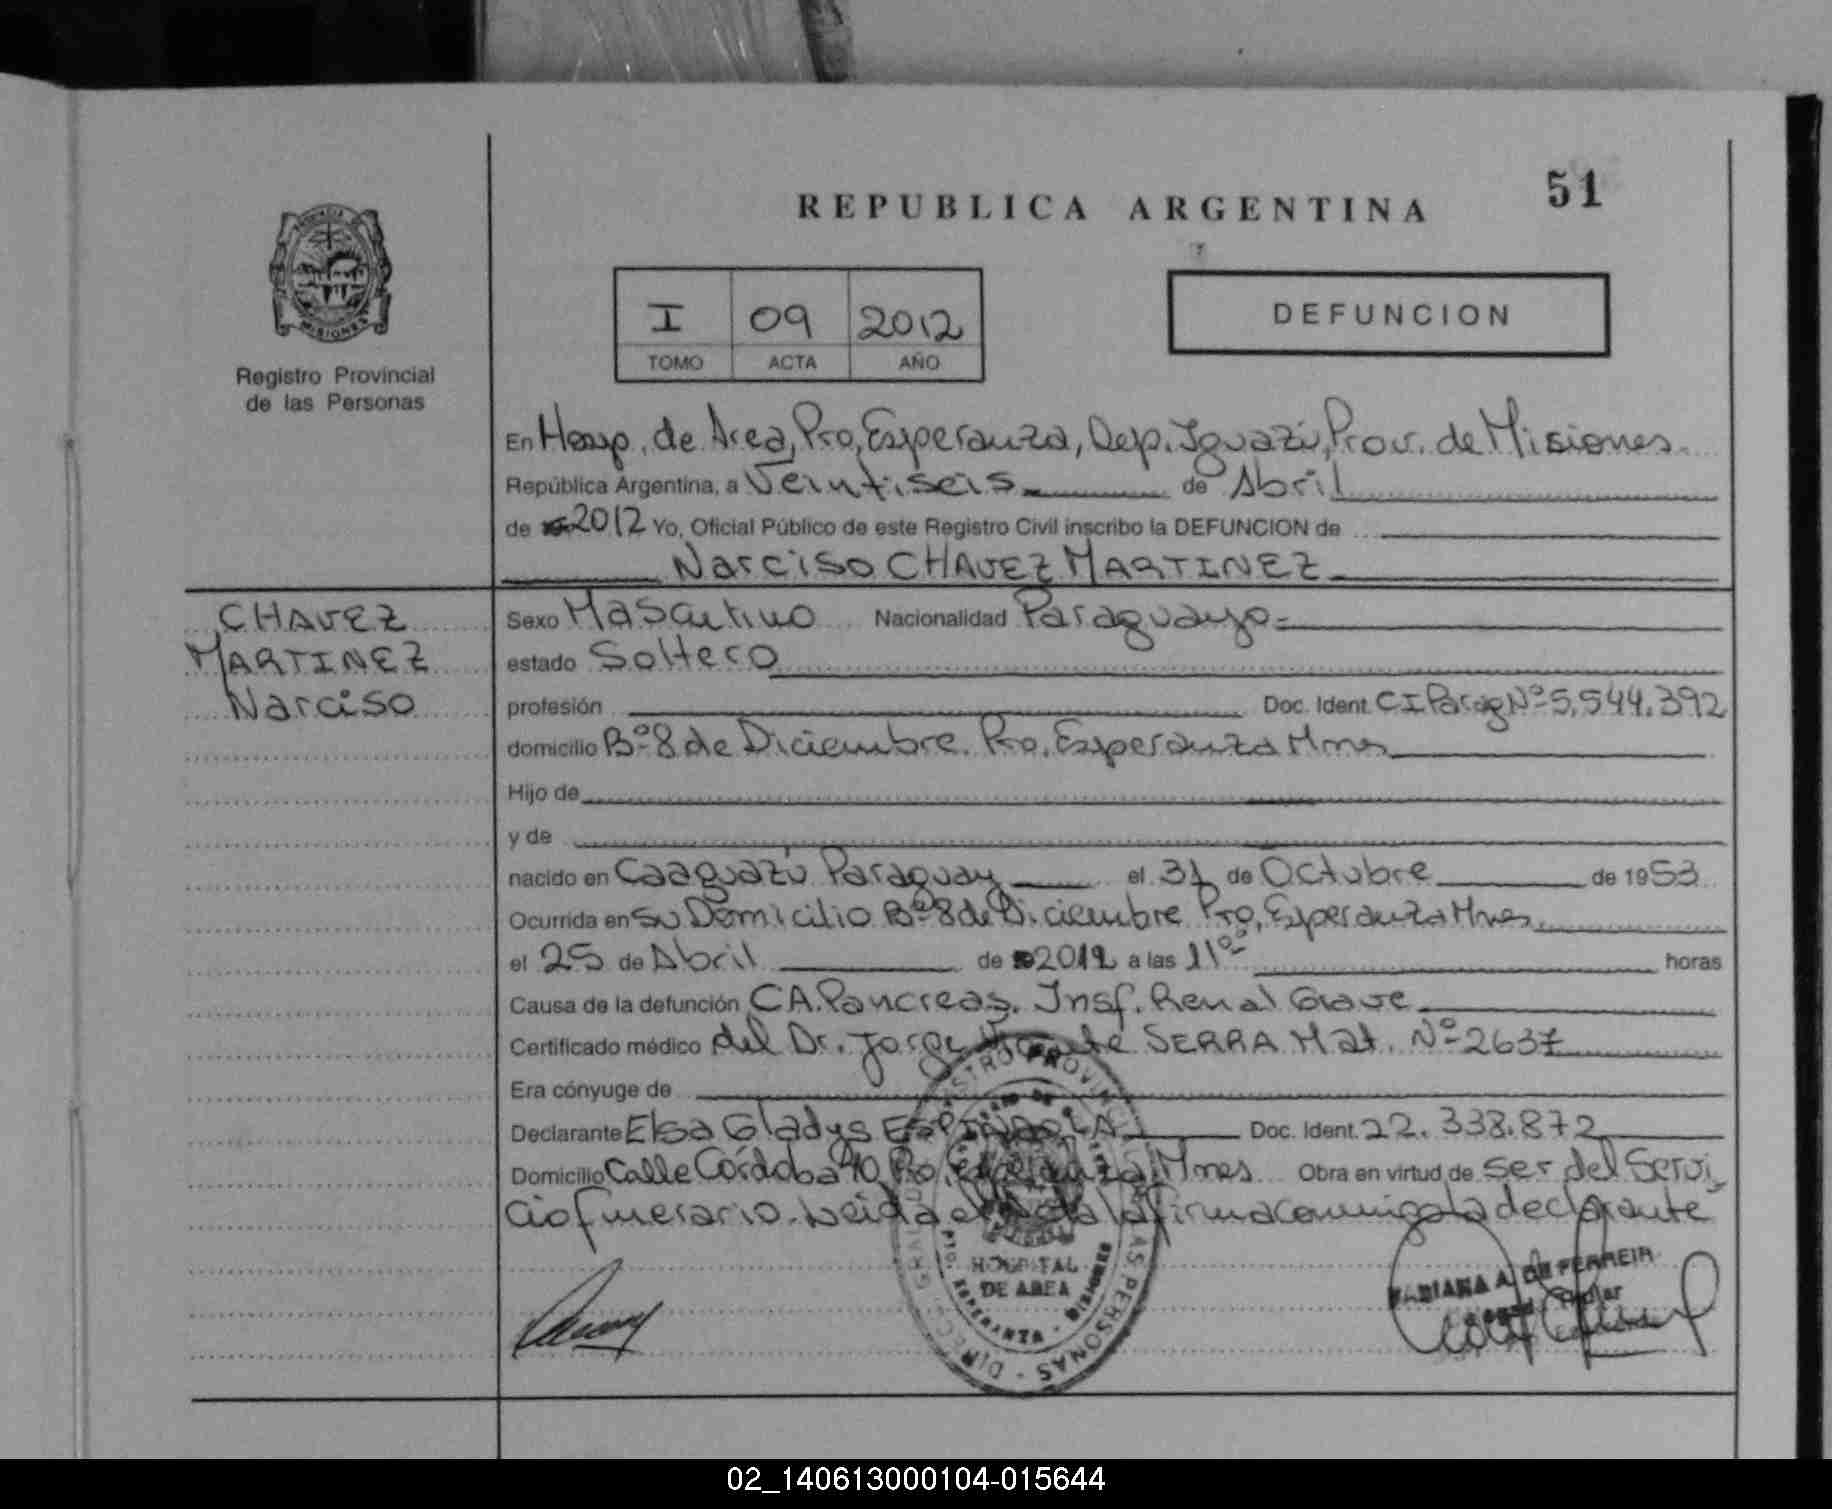 REPUBLICA ARGENTINA
51
I 09 2012
TOMO ACTA AÑO
DEFUNCION
MISIONES
Registro Provincial
de las Personas
En Hosp. de Area, Pto, Esperanza, Dep. Iguazú, Prov. de Misiones.
República Argentina, a Veintiseis de Abril
de 2012 Yo, Oficial Público de este Registro Civil inscribo la DEFUNCION de
Narciso CHAVEZ MARTINEZ
CHAVEZ
MARTINEZ
Narciso
Sexo Masculino Nacionalidad Paraguayo
estado Soltero
profesión Doc. Ident. CI Parag Nº 5,544.392
domicilio Bº 8 de Diciembre. Pto. Esperanza Mnes
Hijo de
y de
nacido en Caaguazú Paraguay el 31 de Octubre de 1953
Ocurrida en Su Domicilio Bº 8 de Diciembre Pto, Esperanza Mnes.
el 25 de Abril de 2012 a las 11ºº horas
Causa de la defunción CA. Pancreas. Insf. Renal Grave
Certificado médico del Dr. Jorge Vicente SERRA Mat. Nº 2637
Era cónyuge de
Declarante Elsa Gladys ESPINDOLA Doc. Ident. 22.338.872
Domicilio Calle Córdoba 40 Pto. Esperanza Mnes Obra en virtud de ser del Servi
cio funerario. Leida el Acta la firma conmigo la declarante
HOSPITAL
DE AREA
PTO. ESPERANZA - MISIONES
FABIANA A. DE FERREIR
02_140613000104-015644